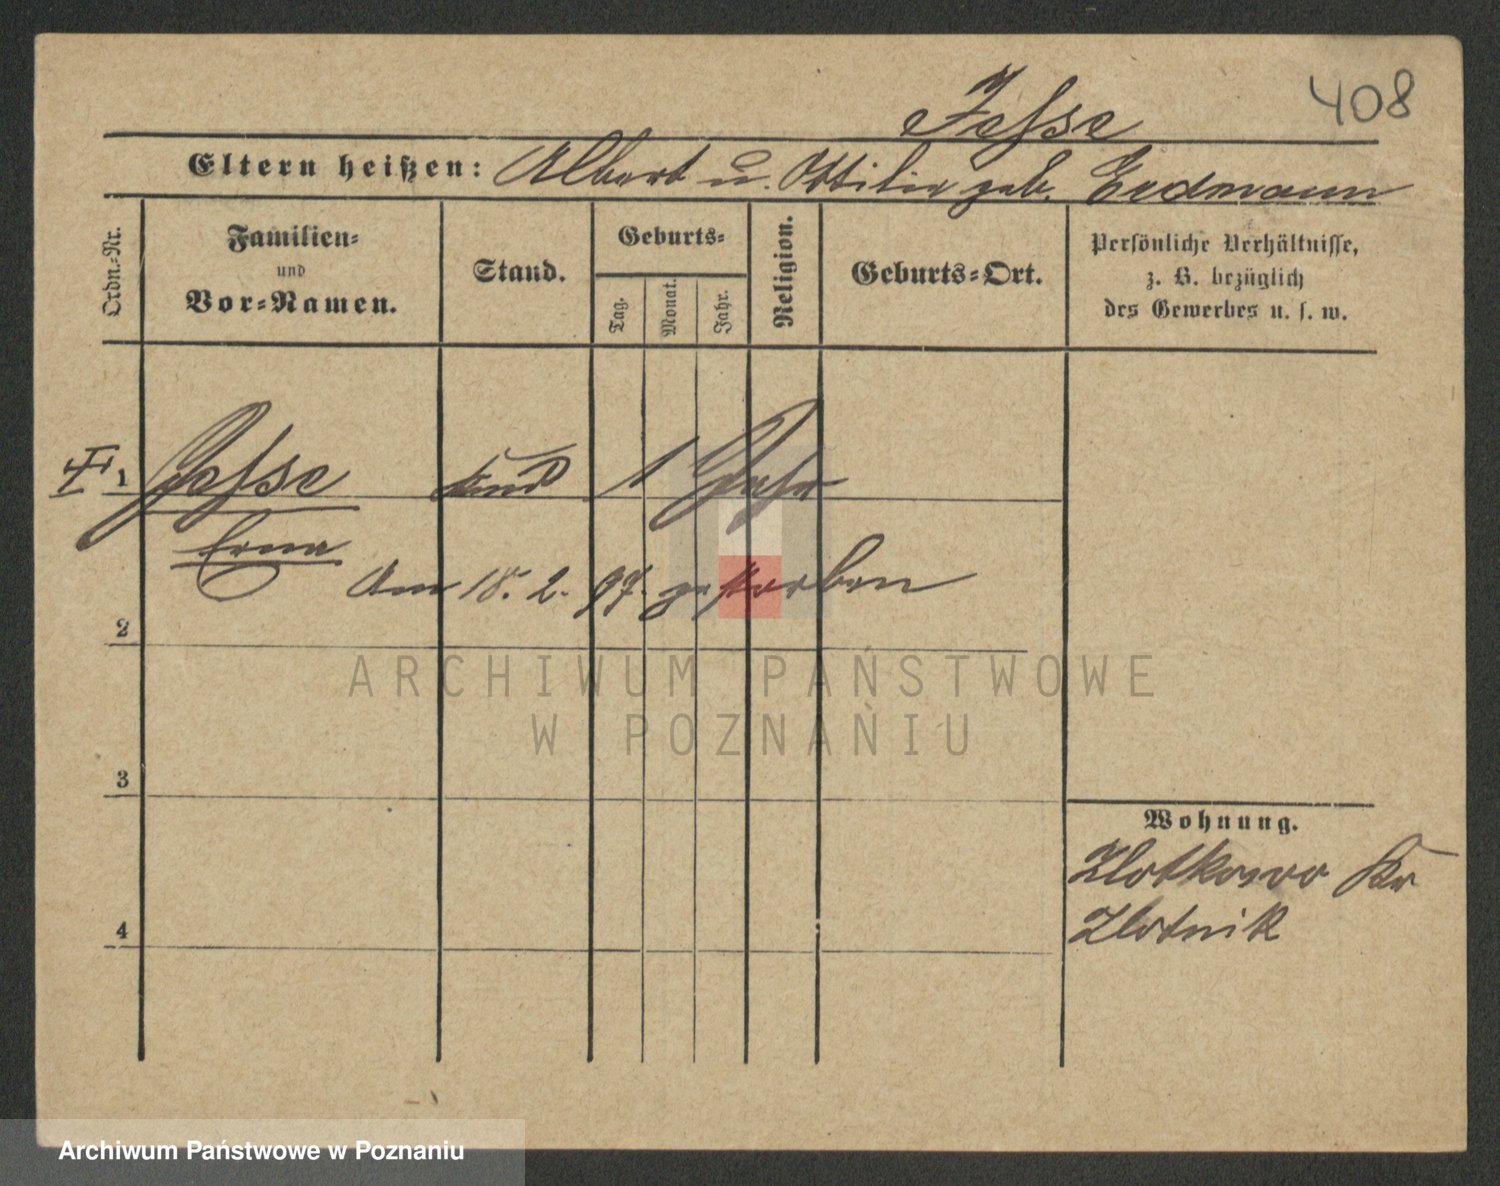 408
Jesse
Eltern heißen: Albert u. Ottilie geb. Erdmann
Ordn.-Nr.
Familien-
und
Vor-Namen.
Stand.
Geburts-
Tag.
Monat.
Jahr.
Religion.
Geburts-Ort.
Persönliche Verhältnisse,
z. B. bezüglich
des Gewerbes u. s. w.
1 Jesse Kind 1 Jahr
Erna
Am 18. 2. 97. gestorben
2
ARCHIWUM PAŃSTWOWE
W POZNANIU
3
Wohnung.
Zlotkowo Kr
Zlotnik
4
Archiwum Państwowe w Poznaniu